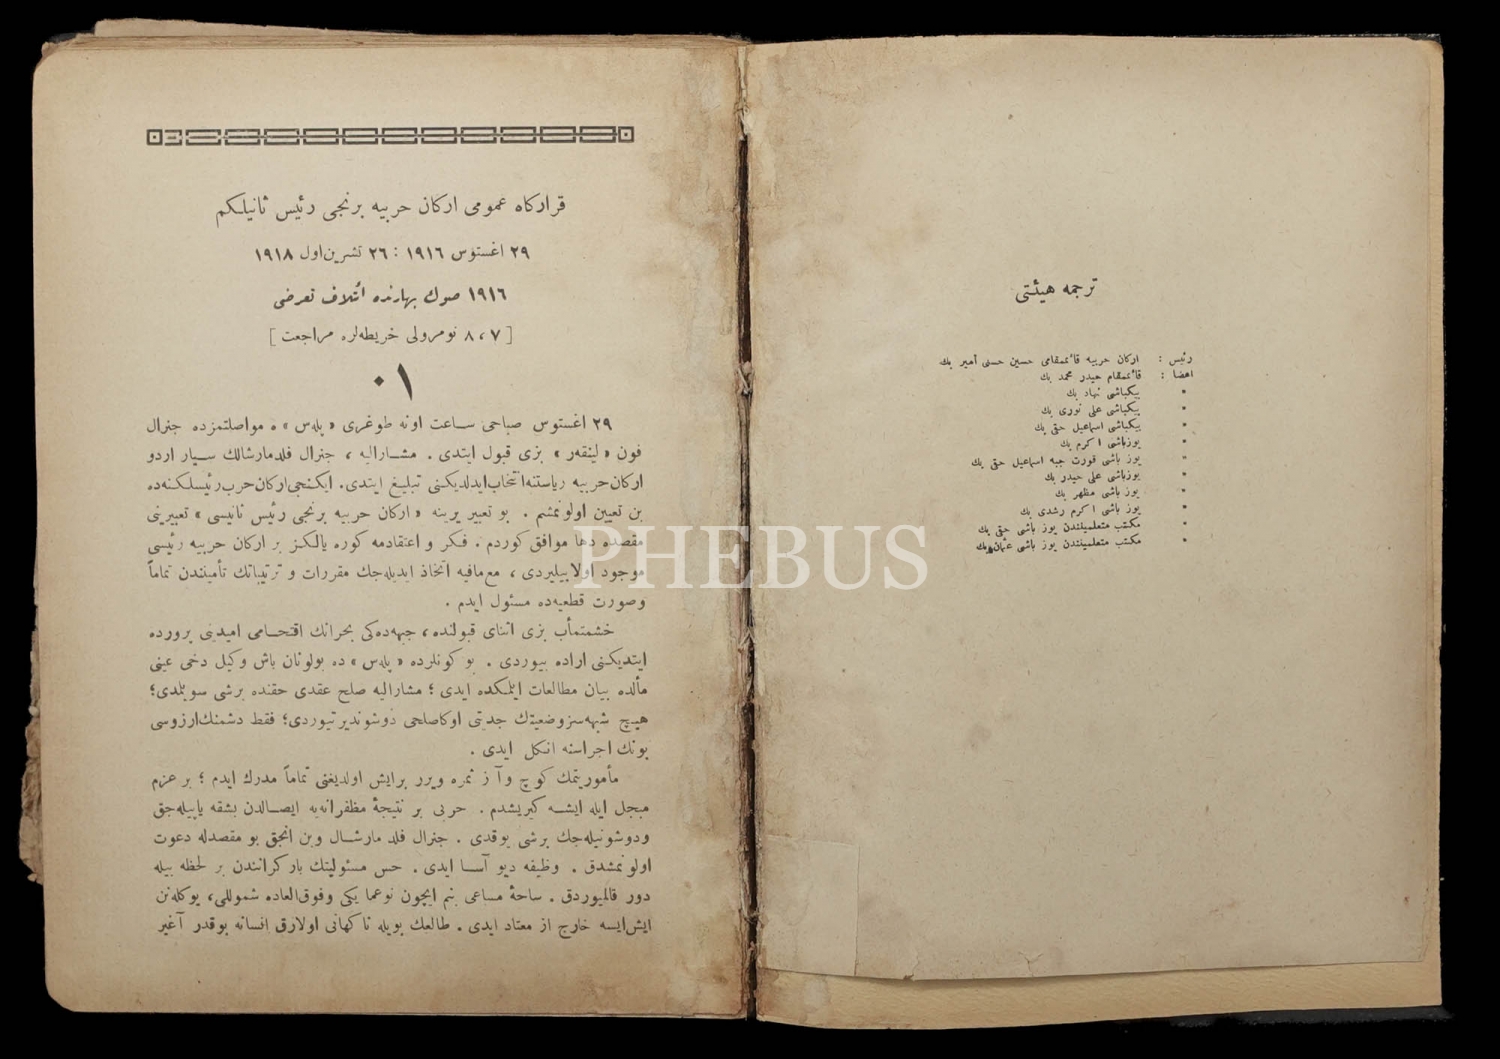 ترجمه هیئتی
رئیس : ارکان حربیه قائممقامی حسین حسنی امیر بك
اعضا : قائممقام حیدر محمد بك
" بیکباشی نهاد بك
" بیکباشی علی نوری بك
" بیکباشی اسماعیل حقی بك
" یوزباشی اکرم بك
" یوز باشی قورت جبه اسماعیل حقی بك
" یوزباشی علی حیدر بك
" یوز باشی مظهر بك
" یوز باشی اکرم رشدی بك
" مکتب متعلمیلندن یوز باشی حقی بك
" مکتب متعلمیلندن یوز باشی عثمان بك
قرارکاه عمومی ارکان حربیه برنجی رئیس ثانیلکم
٢٩ اغستوس ١٩١٦ : ٢٦ تشرین‌اول ١٩١٨
١٩١٦ صوك بهارنده ائتلاف تعرضی
[ ٧، ٨ نومرولی خریطه‌لره مراجعت ]
٠١
٢٩ اغستوس صباحی ساعت اونه طوغری « پله‌س » ه مواصلتمزده جنرال
فون « لینقه‌ر » بزی قبول ایتدی . مشارالیه ، جنرال فلدمارشالك سیار اردو
ارکان حربیه ریاستنه انتخاب ایدلدیکنی تبلیغ ایتدی. ایکنجی ارکان حرب رئیسلکنه‌ده
بن تعیین اولونمشم . بو تعبیر یرینه « ارکان حربیه برنجی رئیس ثانیسی » تعبیرینی
مقصده دها موافق کوردم . فکر و اعتقادمه کوره یالکز بر ارکان حربیه رئیسی
موجود اولابیلیردی ، مع‌مافیه اتخاذ ایدیله‌جك مقررات و ترتیباتك تأمینندن تماماً
وصورت قطعیه‌ده مسئول ایدم .
حشمتمأب بزی اثنای قبولنده ، جبهه‌ده‌کی بحرانك اقتحامی امیدینی پرورده
ایتدیکنی اراده بیوردی . بو کونلرده « پله‌س » ده بولونان باش وکیل دخی عینی
مألده بیان مطالعات ایلمکده ایدی ؛ مشارالیه صلح عقدی حقنده برشی سویلمدی؛
هیچ شبهه‌سز وضعیتك جدیتی اوکا صلحی دوشوندیرتیوردی؛ فقط دشمنك ارزوسی
بونك اجراسنه انکل ایدی .
مأموریتمك کوچ و آز ثمره ویرر برایش اولدیغنی تماماً مدرك ایدم ؛ بر عزم
مبجل ایله ایشه کیریشدم . حربی بر نتیجهٔ مظفرانه‌یه ایصالدن بشقه یاپیله‌جق
ودوشونیله‌جك برشی یوقدی . جنرال فلد مارشال وبن انجق بو مقصدله دعوت
اولونمشدق . وظیفه دیو آسا ایدی . حس مسئولیتك بار کرانندن بر لحظه بیله
دور قالمیوردق . ساحهٔ مساعی بنم ایچون نوعما یکی وفوق‌العاده شموللی، یوکله‌نن
ایش‌ایسه خارج از معتاد ایدی . طالعك بویله ناکهانی اولارق انسانه بوقدر آغیر
PHEBUS